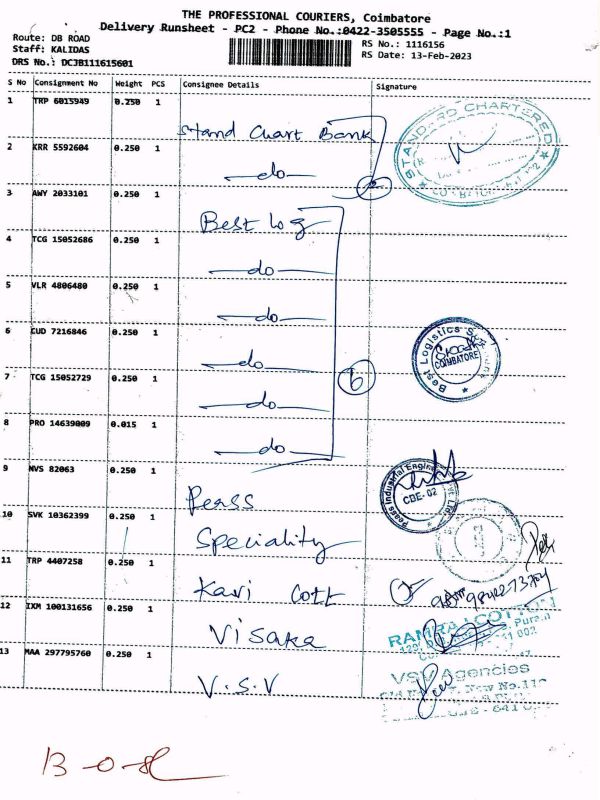 THE PROFESSIONAL COURIERS, Coimbatore
Delivery Runsheet - PC2 - Phone No.:0422-3505555 - Page No.:1
Route: DB ROAD
Staff: KALIDAS
DRS No.: DCJB111615601
RS No.: 1116156
RS Date: 13-Feb-2023
S No Consignment No Weight PCS Consignee Details Signature
1 TRP 6015949 0.250 1 Stand Chart Bank
STANDARD CHARTERED
2 KRR 5592604 0.250 1 —do—
3 AWY 2033101 0.250 1 Best log
4 TCG 15052686 0.250 1 —do—
5 VLR 4806480 0.250 1 —do—
6 CUD 7216846 0.250 1 —do—
Best Logistics
COIMBATORE
7 TCG 15052729 0.250 1 —do—
6
8 PRO 14639009 0.015 1 —do—
9 NVS 82063 0.250 1 Peass
Peass Industrial Engineers
CBE-02
10 SVK 10362399 0.250 1 Speciality
11 TRP 4407258 0.250 1 Kavi Cott
12 IXM 100131656 0.250 1 Visaka
RAMRAJ COTTON
13 MAA 297795760 0.250 1 V.S.V
VSV Agencies
13-0-